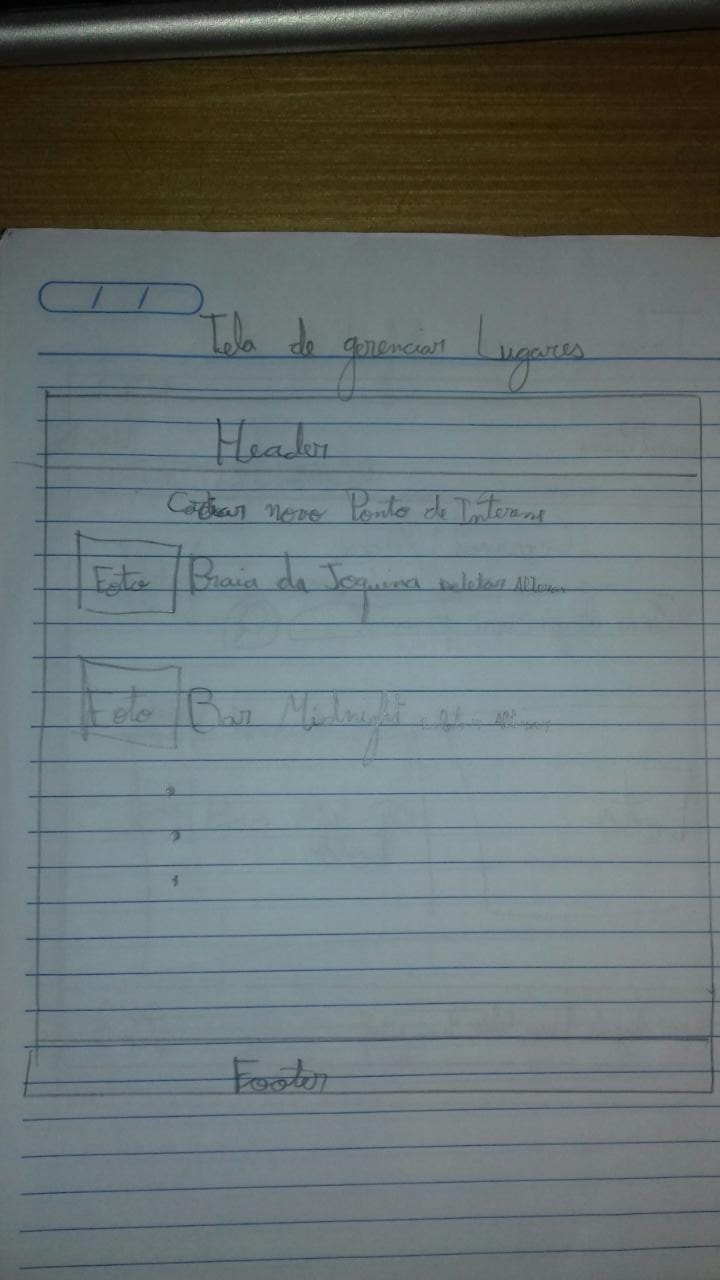 Tela de gerenciar Lugares
Header
novo Ponto de Interesse
Foto Praia da Joquina deletar Alterar
Foto Bar Midnight
Footer